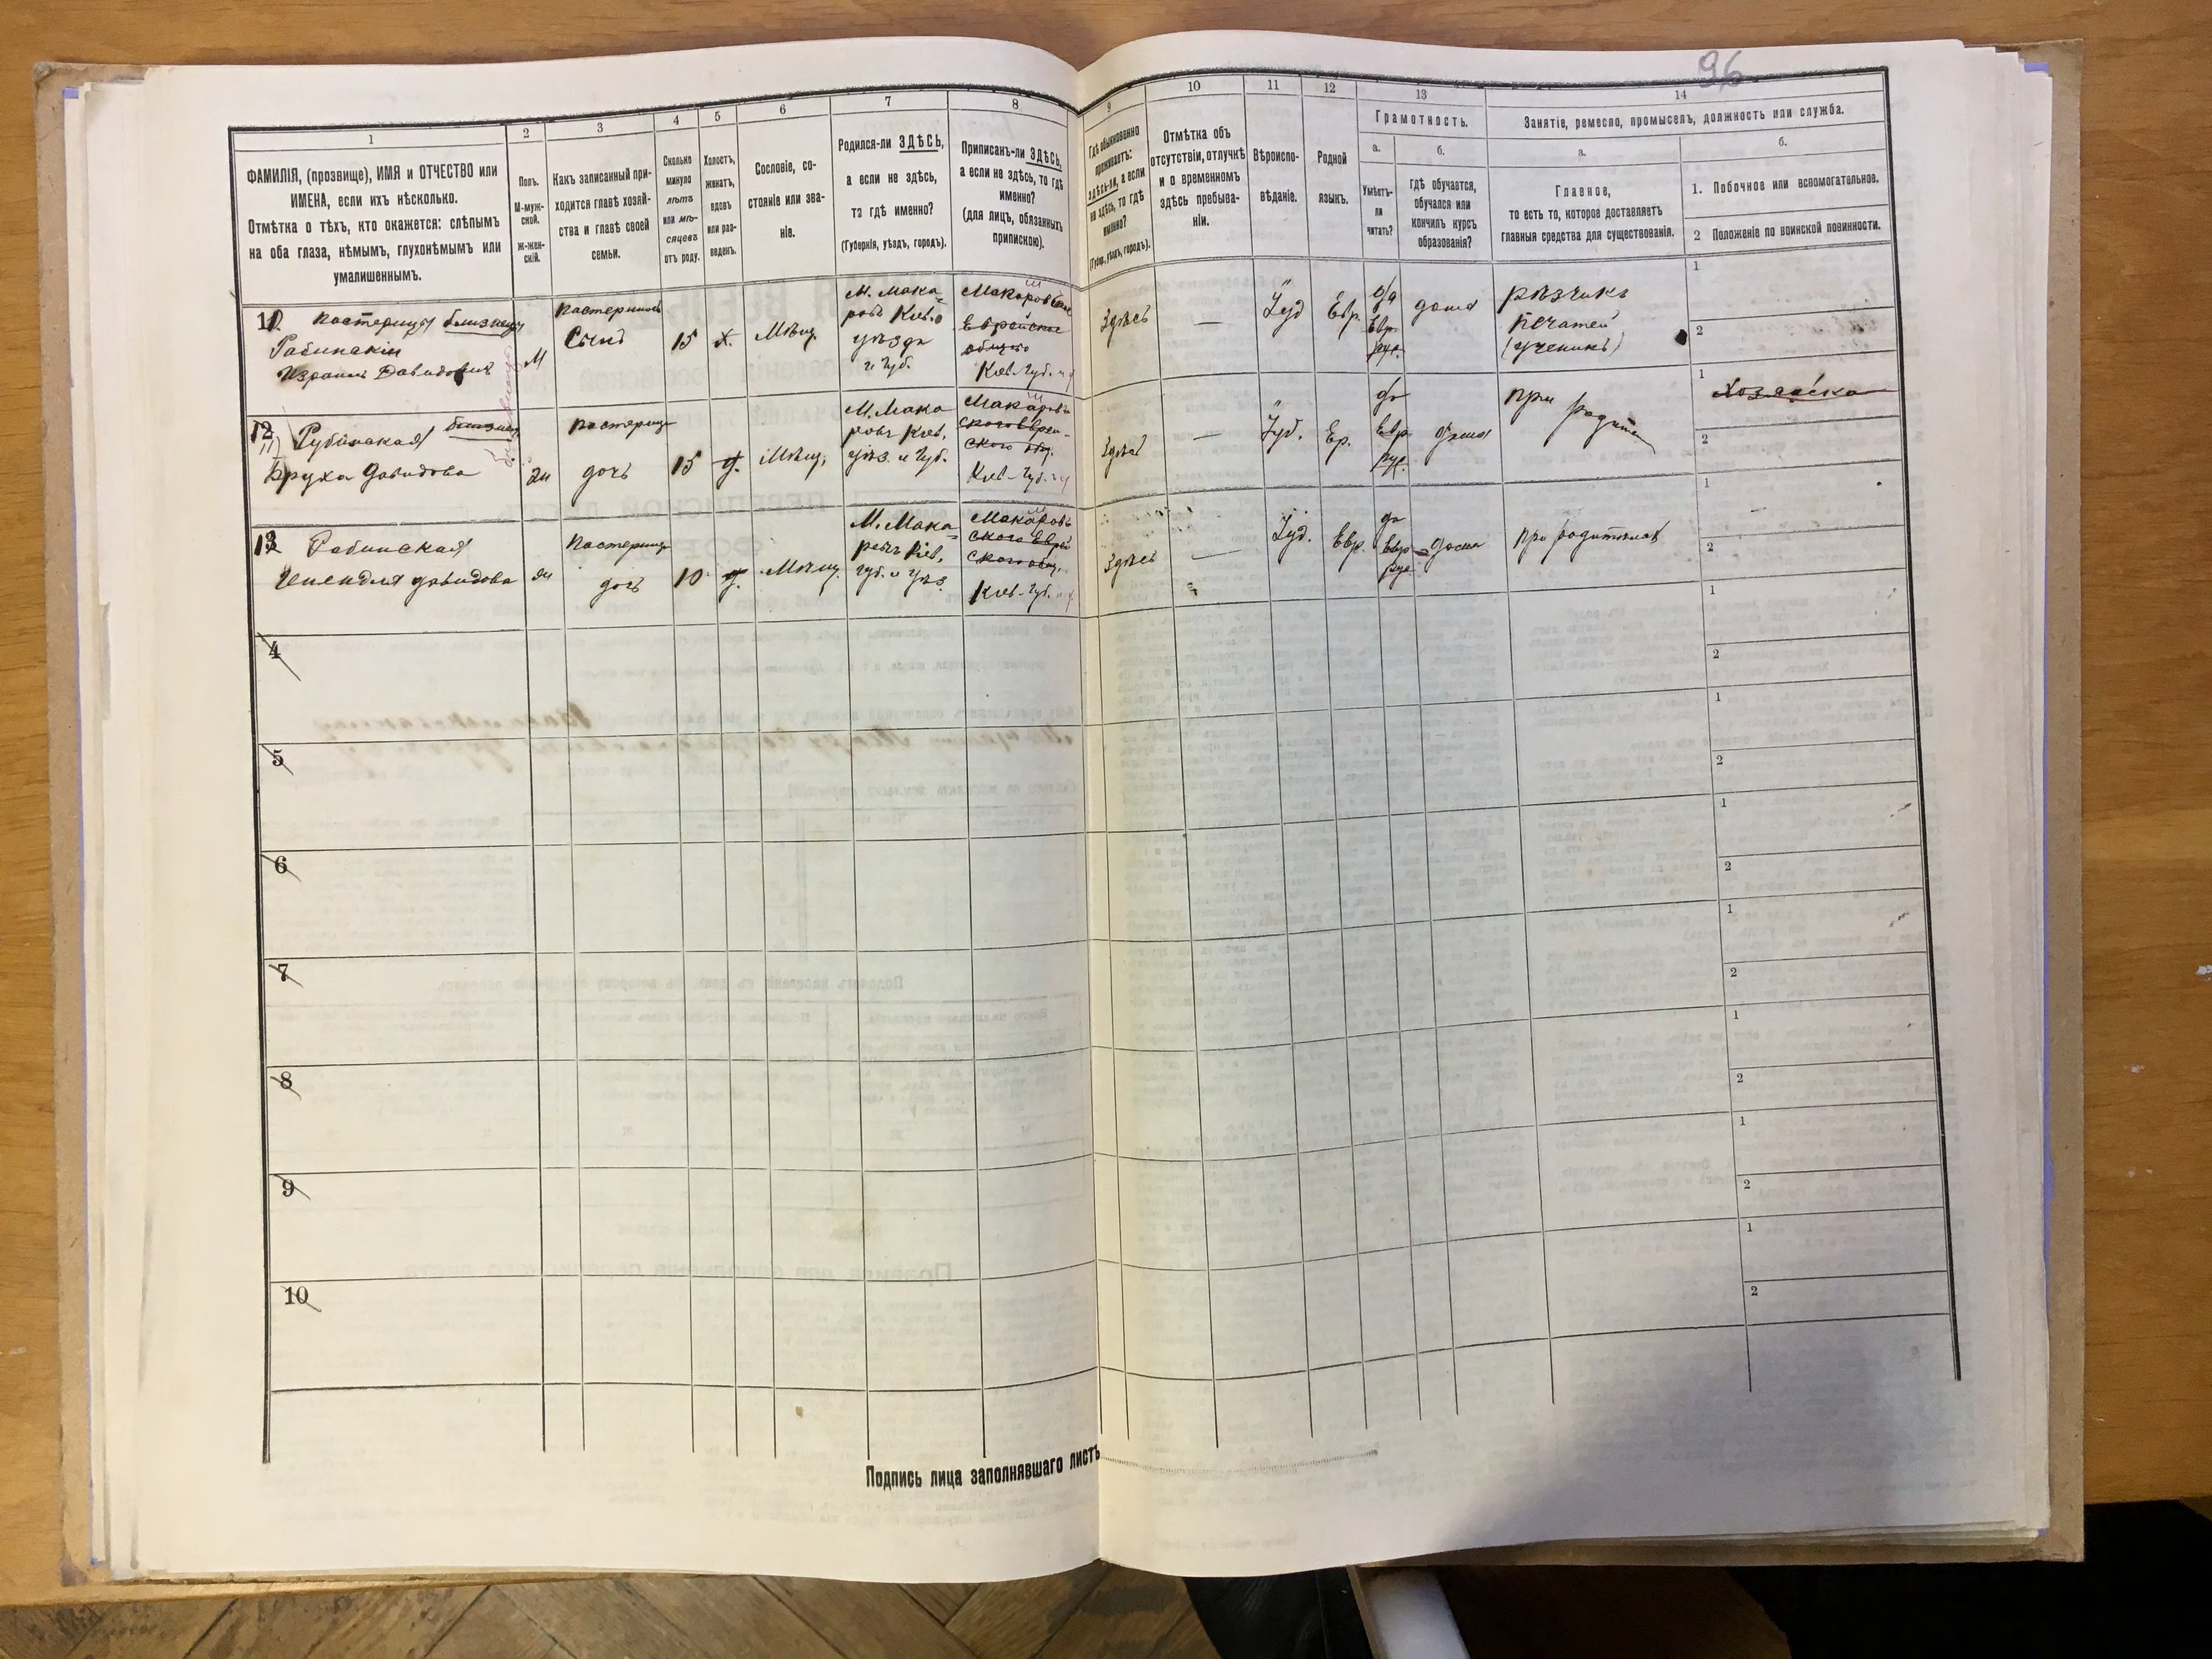 96
1
2
3
4
5
6
7
8
9
10
11
12
13
14
ФАМИЛІЯ, (прозвище), ИМЯ и ОТЧЕСТВО или
ИМЕНА, если ихъ нѣсколько.
Отмѣтка о тѣхъ, кто окажется: слѣпымъ
на оба глаза, нѣмымъ, глухонѣмымъ или
умалишеннымъ.
Полъ.
М-муж-
ской.
ж-жен-
скій.
Какъ записанный при-
ходится главѣ хозяй-
ства и главѣ своей
семьи.
Сколько
минуло
лѣтъ
или мѣ-
сяцевъ
отъ роду.
Холостъ,
женатъ,
вдовъ
или раз-
веденъ.
Сословіе, со-
стояніе или зва-
ніе.
Родился-ли ЗДѢСЬ,
а если не здѣсь,
то гдѣ именно?
(Губернія, уѣздъ, городъ).
Приписанъ-ли ЗДѢСЬ,
а если не здѣсь, то гдѣ
именно?
(для лицъ, обязанныхъ
припискою).
Гдѣ обыкновенно
проживаетъ:
здѣсь-ли, а если
не здѣсь, то гдѣ
именно?
(Губер., уѣздъ, городъ).
Отмѣтка объ
отсутствіи, отлучкѣ
и о временномъ
здѣсь пребыва-
ніи.
Вѣроиспо-
вѣданіе.
Родной
языкъ.
Грамотность.
а.
Умѣетъ-
ли
читать?
б.
гдѣ обучается,
обучался или
кончилъ курсъ
образованія?
Занятіе, ремесло, промыселъ, должность или служба.
а.
Главное,
то есть то, которое доставляетъ
главныя средства для существованія.
б.
1. Побочное или вспомогательное.
2 Положеніе по воинской повинности.
близнец
Израиль Давидовичъ
М
Сынъ
15
Х.
Мѣщ.
М. Мака-
ровъ Кіев.
уѣзда
и Губ.
Кіев. Губ.
Здѣсь
—
Іуд
Евр.
да
Евр.
рус.
дома
рѣзчикъ
печатей
(ученикъ)
1
2
12
Давидова
дочь
15
Мѣщ.
М. Мака
ровъ Кіев.
уѣз. и Губ.
Кіев. Губ.
—
Іуд.
Ер.
да
Евр
рус.
дома
при
1
Хозяйка
2
13
Рабинская
Давидова
дочь
10
Мѣщ.
М. Мака-
ровъ Кіев.
Губ. и Уѣз.
Кіев. Губ.
Здѣсь
—
Іуд.
Евр.
да
Евр
рус.
дома
при родителяхъ
1
2
4
1
2
5
1
2
6
1
2
7
1
2
8
1
2
9
1
2
10
1
2
Подпись лица заполнявшаго листъ